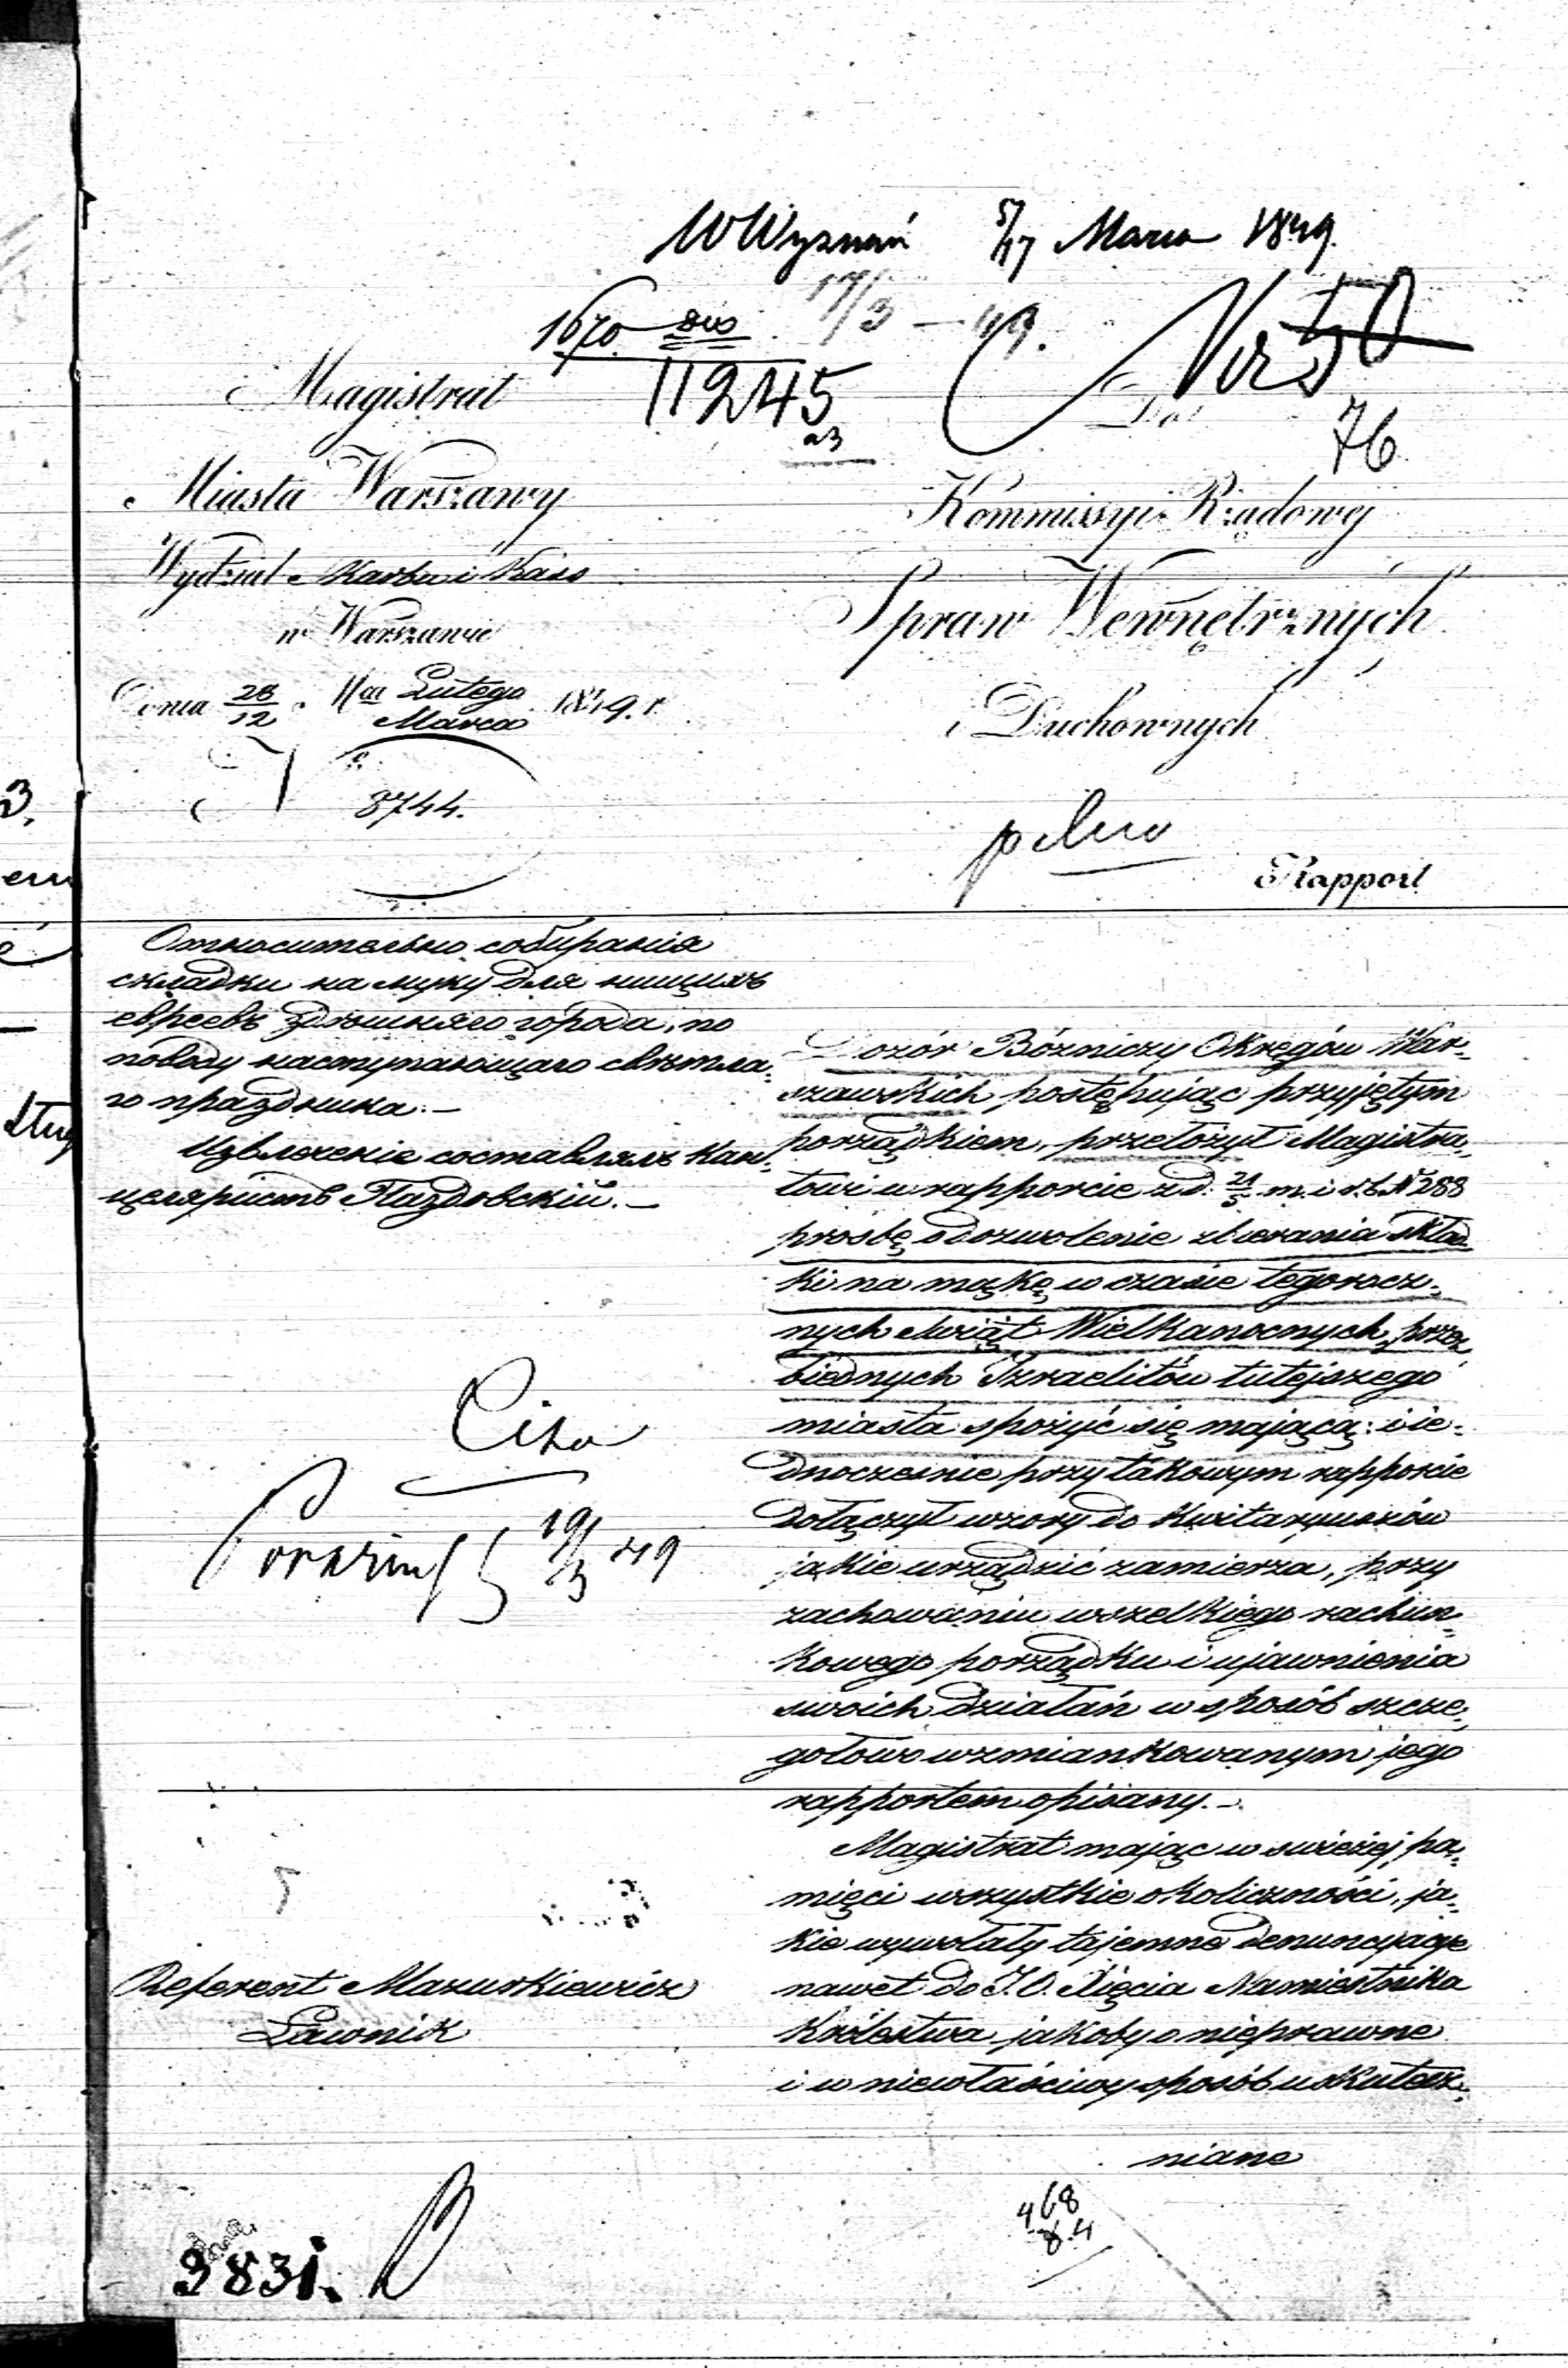 WWyznań 5/17 Marca 1849.
1670 17/3 – 49. Nr 50
11245
76
Magistrat
Miasta Warszawy
Wydział Skarbu i Kass
w Warszawie
Dnia 28/12 Mca Lutego/Marca 1849. r.
8744.
Do
Kommissyi Rządowej
Spraw Wewnętrznych
i Duchownych
pilno
Rapport
Относительно собиранія
складки на муку для нищихъ
евреевъ здѣшняго города, по
поводу наступающаго свѣтла-
го праздника.—
Извлеченіе составлялъ Кан-
целяристъ Паздовскій.—
Cito
19/3 49
Referent Mazurkiewicz
Ławnik
Dozór Bóżniczy Okręgów War-
szawskich postępując przyjętym
porządkiem, przełożył Magistra-
towi w rapporcie z d. 21/5 m. i r. b. N 288
prośbę o dozwolenie zbierania skład-
ki na mąkę w czasie tegorocz-
nych Świąt Wielkanocnych, przez
biednych Izraelitów tutejszego
miasta spożyć się mającą; i ie-
dnocześnie przy takowym rapporcie
dołączył wzory do Kwitaryuszów
jakie urządzić zamierza, przy
zachowaniu wszelkiego rachun-
kowego porządku i ujawnienia
swoich działań w sposób szcze-
gółowo wzmiankowanym jego
rapportem opisany.—
Magistrat mając w świeżej pa-
mięci wszystkie okoliczności, ja-
kie wywołały tajemne denuncyacye
nawet do J. O. Xięcia Namiestnika
Królestwa jakoby o nieprawne
i w niewłaściwy sposób uskutecz-
niane
468
8.4
3831.